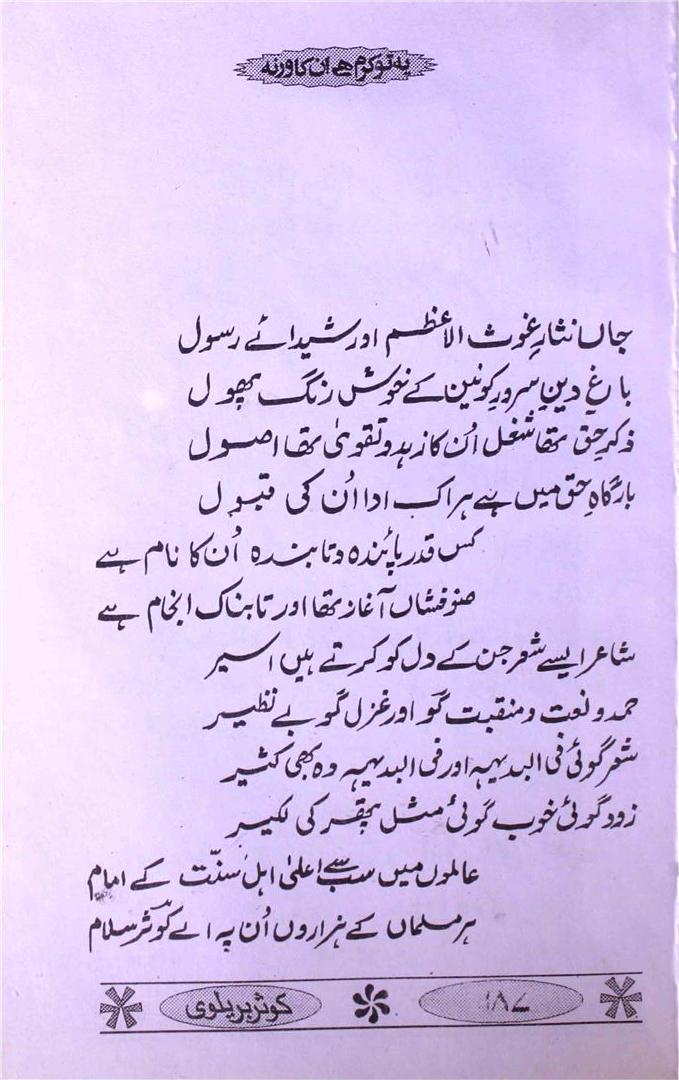 یہ تو کرم ہے ان کا ورنہ
جاں نثارِ غوث الاعظم اور شیدائے رسول
باغِ دینِ سرورِ کونین کے خوش رنگ پھول
ذکرِ حق تھا شغل اُن کا زہد و تقویٰ تھا اصول
بارگاہِ حق میں ہے ہر اک ادا اُن کی قبول
کس قدر پائندہ و تابندہ اُن کا نام ہے
ضوفشاں آغاز تھا اور تابناک انجام ہے
شاعر ایسے شعر جن کے دل کو کرتے ہیں اسیر
حمد و نعت و منقبت گو اور غزل گو بے نظیر
شعر گوئی فی البدیہہ اور فی البدیہہ وہ بھی کثیر
زود گوئی خوب گوئی مثل پتھر کی لکیر
عالموں میں سب سے اعلیٰ اہل سنّت کے امام
ہر مسلماں کے ہزاروں اُن پہ اے کوثرؔ سلام
کوثر بریلوی
۱۸۷